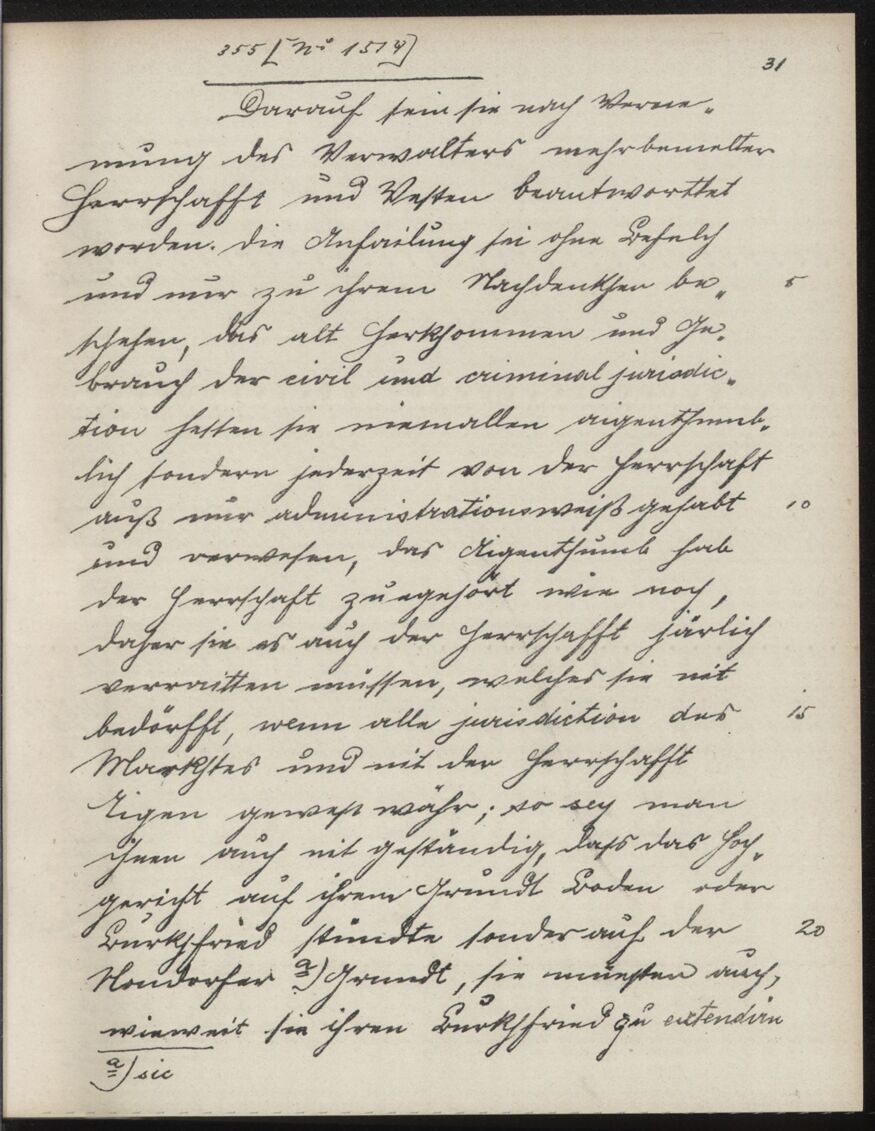 355 [No 151y]
31
Darauf sein sie nach Verne„
mung des Verwalters mehrbemelter
Herrschafft und Vesten beantworttet
worden. die Anfailung sei ohne Befelch
und nur zu ihrem Nachdenkhen be„ 5
schehen, das alt Herkhommen und Ge„
brauch der civil und criminal jurisdic„
tion hetten sie niemallen aigenthumb„
lich sondern jederzeit von der Herrschaft
auß nur administrationsweiß gehabt 10
und verwesen, das Aigenthumb hab
der Herrschaft zuegehört wie noch,
daher sie es auch der Herrschafft järlich
verraitten müssen, welches sie nit
bedörfft, wenn alle jurisdiction des 15
Markhtes und nit der Herrschafft
Eigen gewest währ; so sey man
ihnen auch nit geständig, dass das Hoch„
gericht auf ihrem Grundt Boden oder
Burkhfried stündte sonder auf der 20
Nondorfer a) Grundt, sie müesten auch,
wieweit sie ihren Burkhfried zu extendirn
a) sic